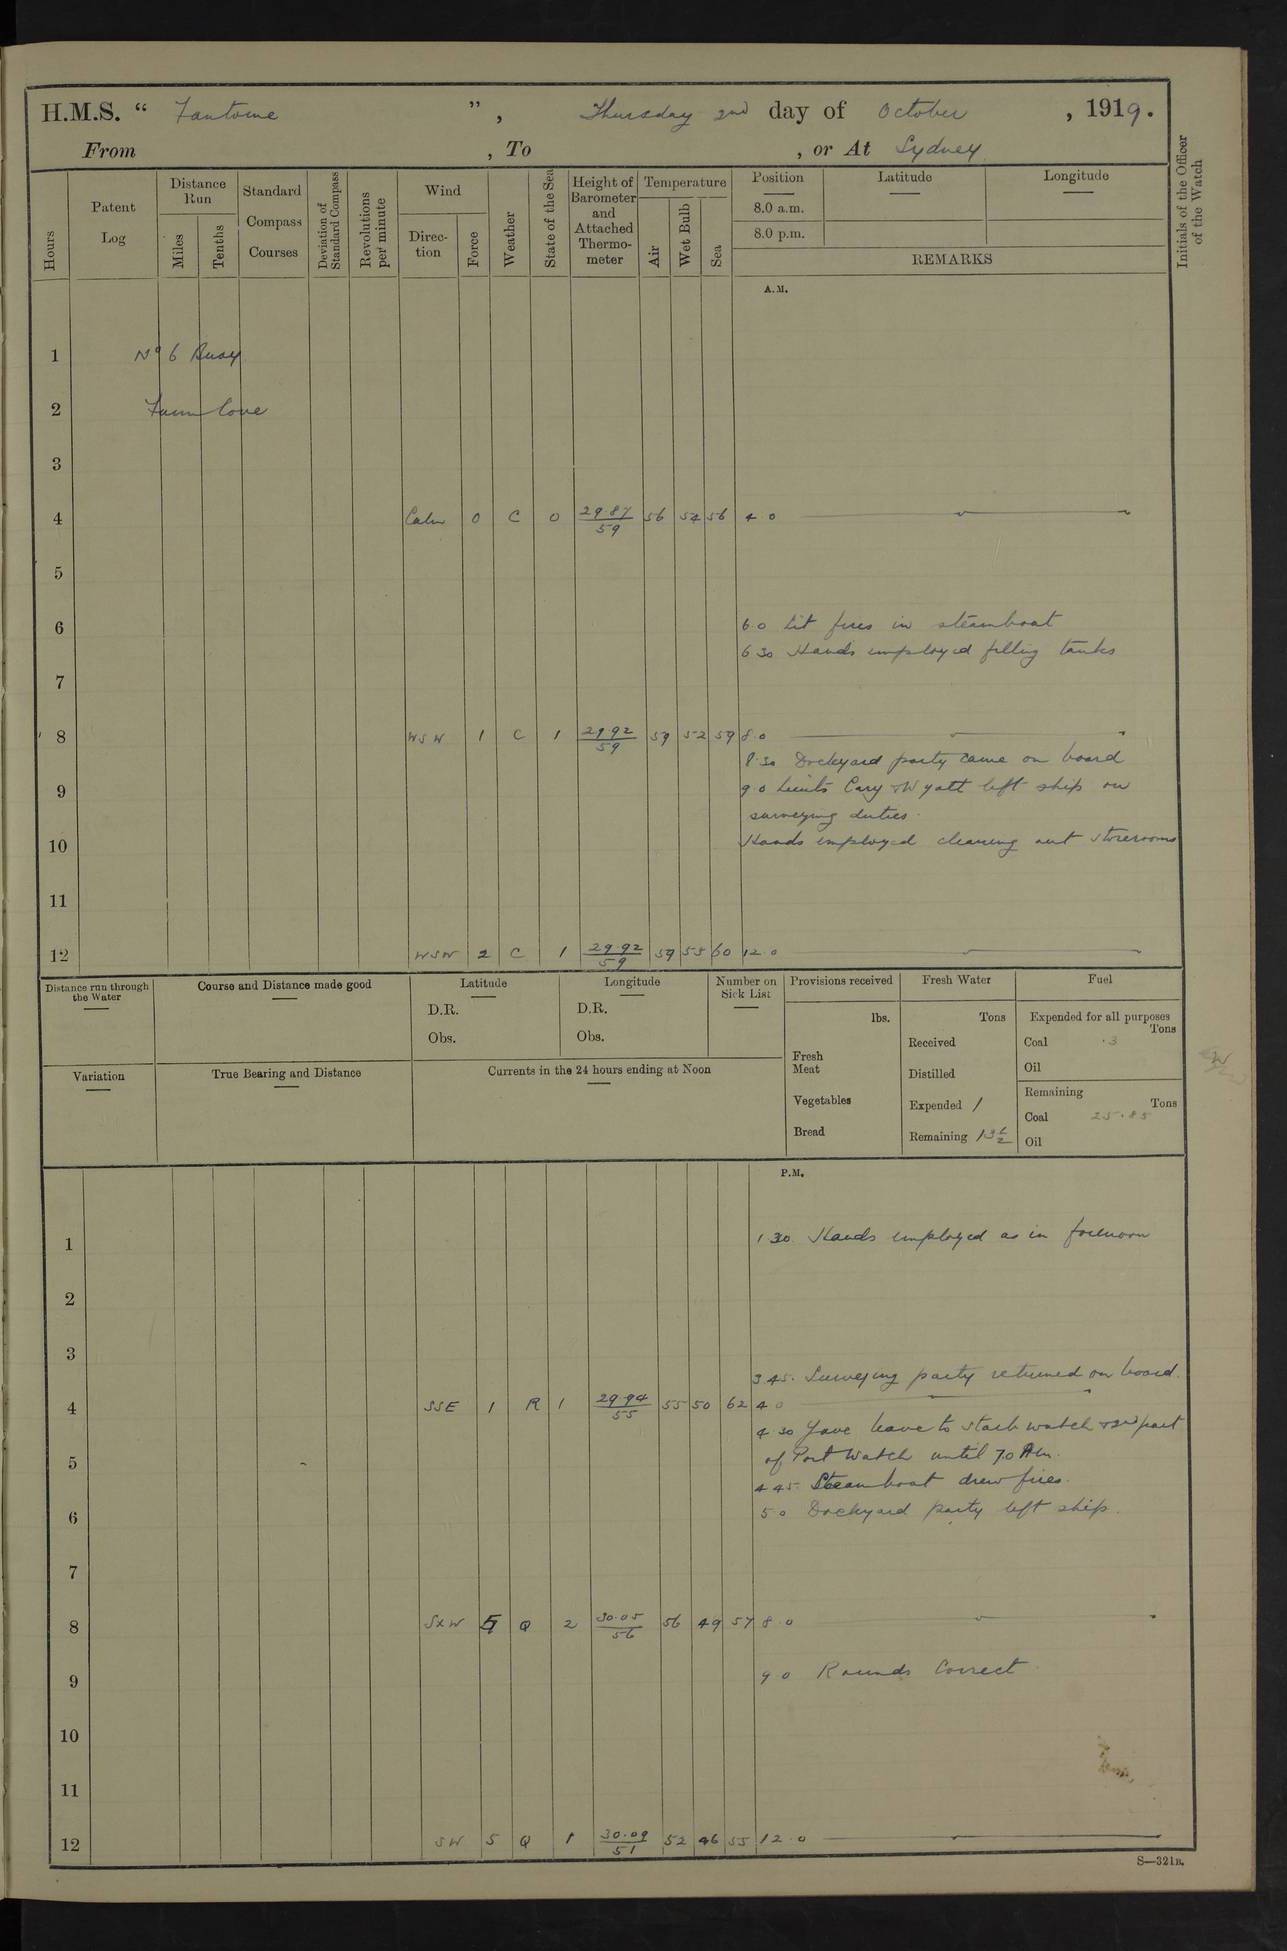 H.M.S. “ Fantome ”, Thursday 2nd day of October , 1919.
From , To , or At Sydney
Hours
Patent Log
Distance Run
Miles
Tenths
Standard Compass Courses
Deviation of Standard Compass
Revolutions per minute
Wind
Direction
Force
Weather
State of the Sea
Height of Barometer and Attached Thermometer
Temperature
Air
Wet Bulb
Sea
Position
8.0 a.m.
8.0 p.m.
Latitude
Longitude
REMARKS
Initials of the Officer of the Watch
A.M.
1 No 6 Buoy
2 Farm Cove
3
4 Calm 0 C 0 29.87/59 56 54 56 4.0
5
6 6.0 Lit fires in steamboat
6 30 Hands employed filling tanks
7
8 WSW 1 C 1 29.92/59 59 52 59 8.0
8.30 Dockyard party came on board
9 9.0 Lieuts Cary & Wyatt left ship on
surveying duties.
10 Hands employed cleaning out storerooms
11
12 WSW 2 C 1 29.92/59 59 55 60 12.0
Distance run through the Water
Course and Distance made good
Latitude
D.R.
Obs.
Longitude
D.R.
Obs.
Number on Sick List
Provisions received
lbs.
Fresh Meat
Vegetables
Bread
Fresh Water
Tons
Received
Distilled
Expended 1
Remaining 13½
Fuel
Expended for all purposes
Tons
Coal .3
Oil
Remaining
Tons
Coal 25.85
Oil
Variation
True Bearing and Distance
Currents in the 24 hours ending at Noon
P.M.
1 1 30. Hands employed as in forenoon
2
3
3.45. Surveying party returned on board.
4 SSE 1 R 1 29.94/55 55 50 62 4 0
4 30 Gave leave to starb watch & 2nd part
5 of Port Watch until 7.0 Am.
4 45. Steamboat drew fires.
6 5 0 Dockyard party left ship.
7
8 SxW 5 Q 2 30.05/56 56 49 57 8.0
9 9 0 Rounds Correct
10
11
12 SW 5 Q 1 30.09/51 52 46 55 12.0
S—321B.